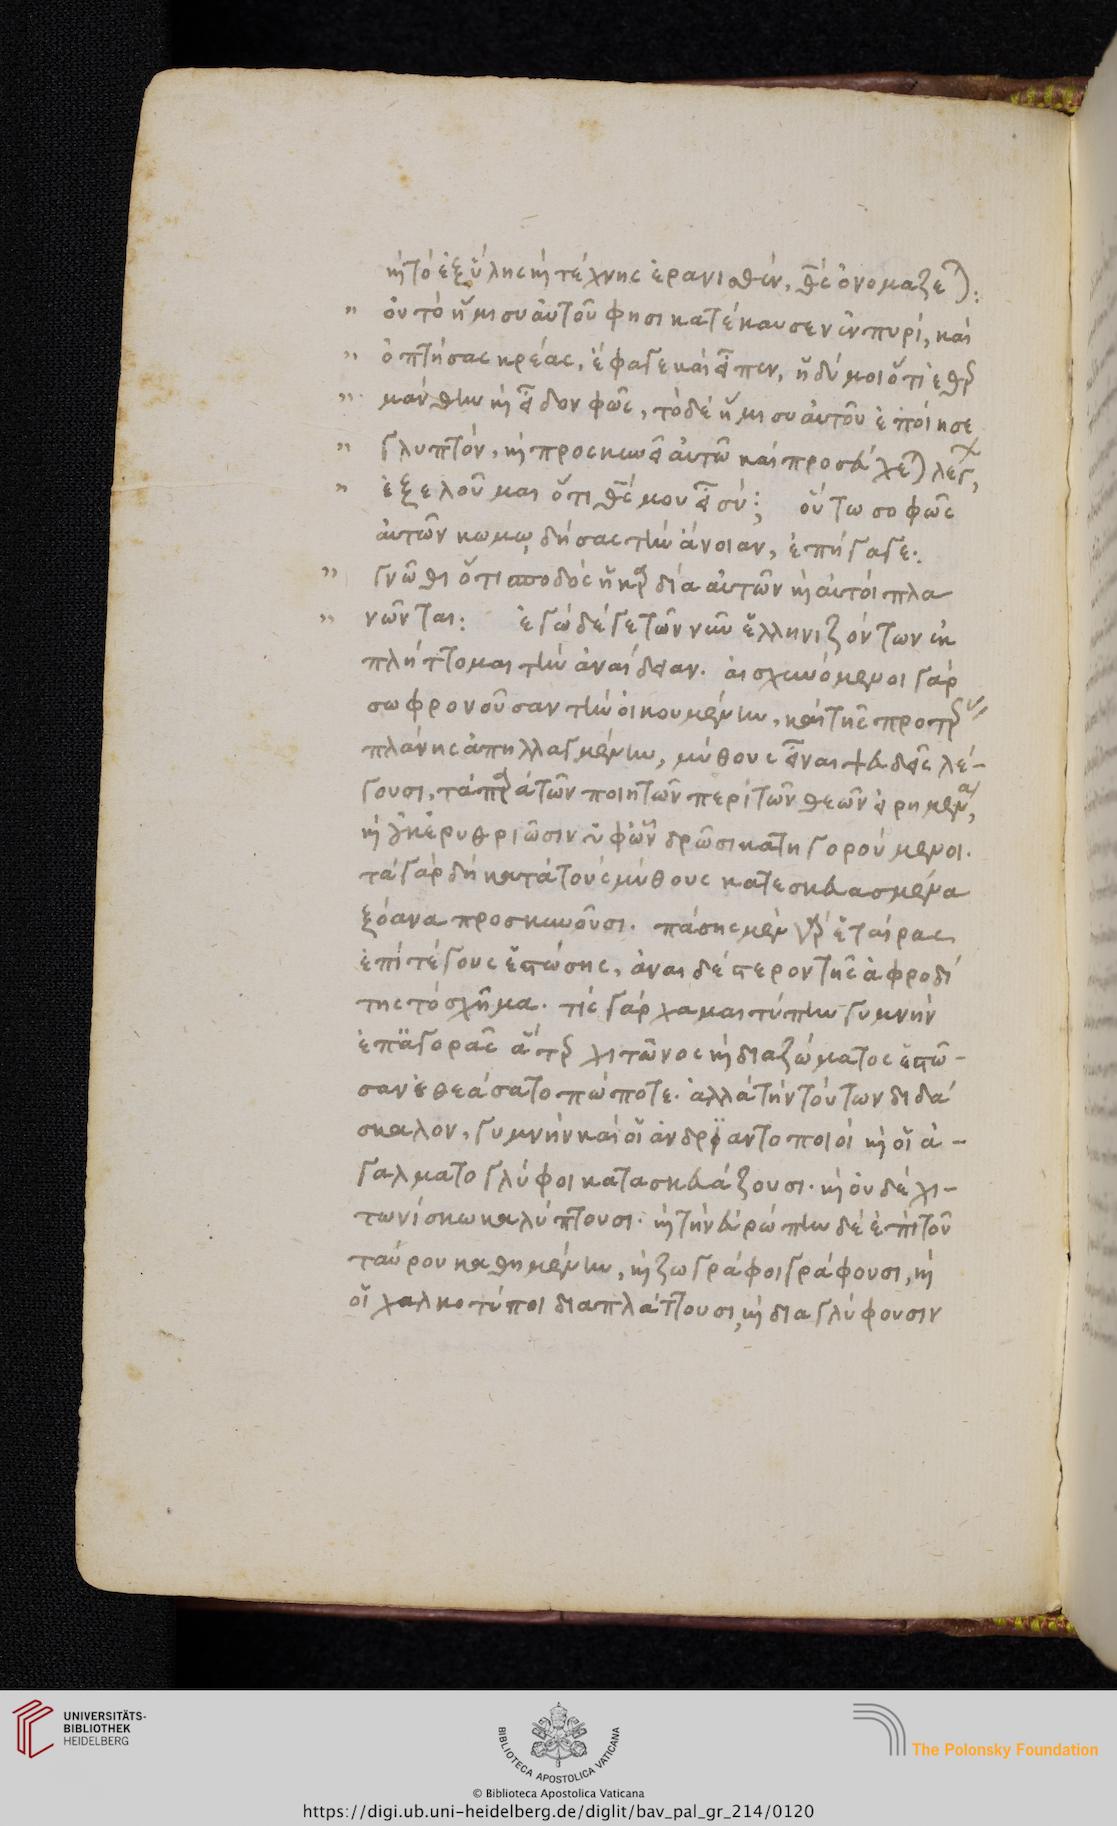 κ τὸ ἐξ ὕλης κ τέχνης ἐρανισθὲν, θεὸς ὀνομάζεται:
οὗ τὸ ἥμισυ αὐτοῦ φησι κατέκαυσεν ἐν πυρί, καὶ
ὀπτήσας κρέας, ἔφαγε καὶ εἶπεν, ἡδύ μοι ὅτι ἐθερ
μάνθην κ εἶδον φῶς, τὸ δὲ ἥμισυ αὐτοῦ ἐποίησε
γλυπτὸν, κ προσκυνεῖ αὐτῶ καὶ προσεύχεται λέγων,
ἐξελοῦ με ὅτι θεός μου εἶ σύ: οὕτω σοφῶς
αὐτῶν κωμωδήσας τὴν ἄνοιαν, ἐπήγαγε:
γνῶθι ὅτι σποδὸς ἡ καρδία αὐτῶν κ αὐτοὶ πλα
νῶνται: ἐγὼ δέ γε τῶν νῦν ἑλληνιζόντων ἐκ
πλήττομαι τὴν ἀναίδειαν. αἰσχυνόμενοι γὰρ
σωφρονοῦσαν τὴν οἰκουμένην, καὶ τῆς προτέρας
πλάνης ἀπηλλαγμένην, μύθους εἶναι ψευδεῖς λέ-
γουσι, τὰ παρὰ τῶν ποιητῶν περὶ τῶν θεῶν εἰρημένα,
κ οὐκ ἐρυθριῶσιν ὑφ' ὧν δρῶσι κατηγορούμενοι.
τὰ γὰρ δὴ κατὰ τοὺς μύθους κατεσκευασμένα
ξόανα προσκυνοῦσι. πάσης μὲν γὰρ ἑταίρας
ἐπὶ τέγους ἑστώσης, ἀναιδέστερον τῆς ἀφροδί
της τὸ σχῆμα. τίς γὰρ χαμαιτύπην γυμνὴν
ἐπ' ἀγορᾶς ἄτερ χιτῶνος κ διαζώματος ἑστῶ-
σαν ἐθεάσατο πώποτε. ἀλλὰ τὴν τούτων διδά
σκαλον, γυμνὴν καὶ οἱ ἀνδριαντοποιοὶ κ οἱ ἀ-
γαλματογλύφοι κατασκευάζουσι. κ οὐδὲ χι-
τωνίσκω καλύπτουσι. κ τὴν εὐρώπην δὲ ἐπὶ τοῦ
ταύρου καθημένην, κ ζωγράφοι γράφουσι, κ
οἱ χαλκοτύποι διαπλάττουσι, κ διαγλύφουσιν
UNIVERSITÄTS-
BIBLIOTHEK
HEIDELBERG
BIBLIOTECA APOSTOLICA VATICANA
The Polonsky Foundation
© Biblioteca Apostolica Vaticana
https://digi.ub.uni-heidelberg.de/diglit/bav_pal_gr_214/0120